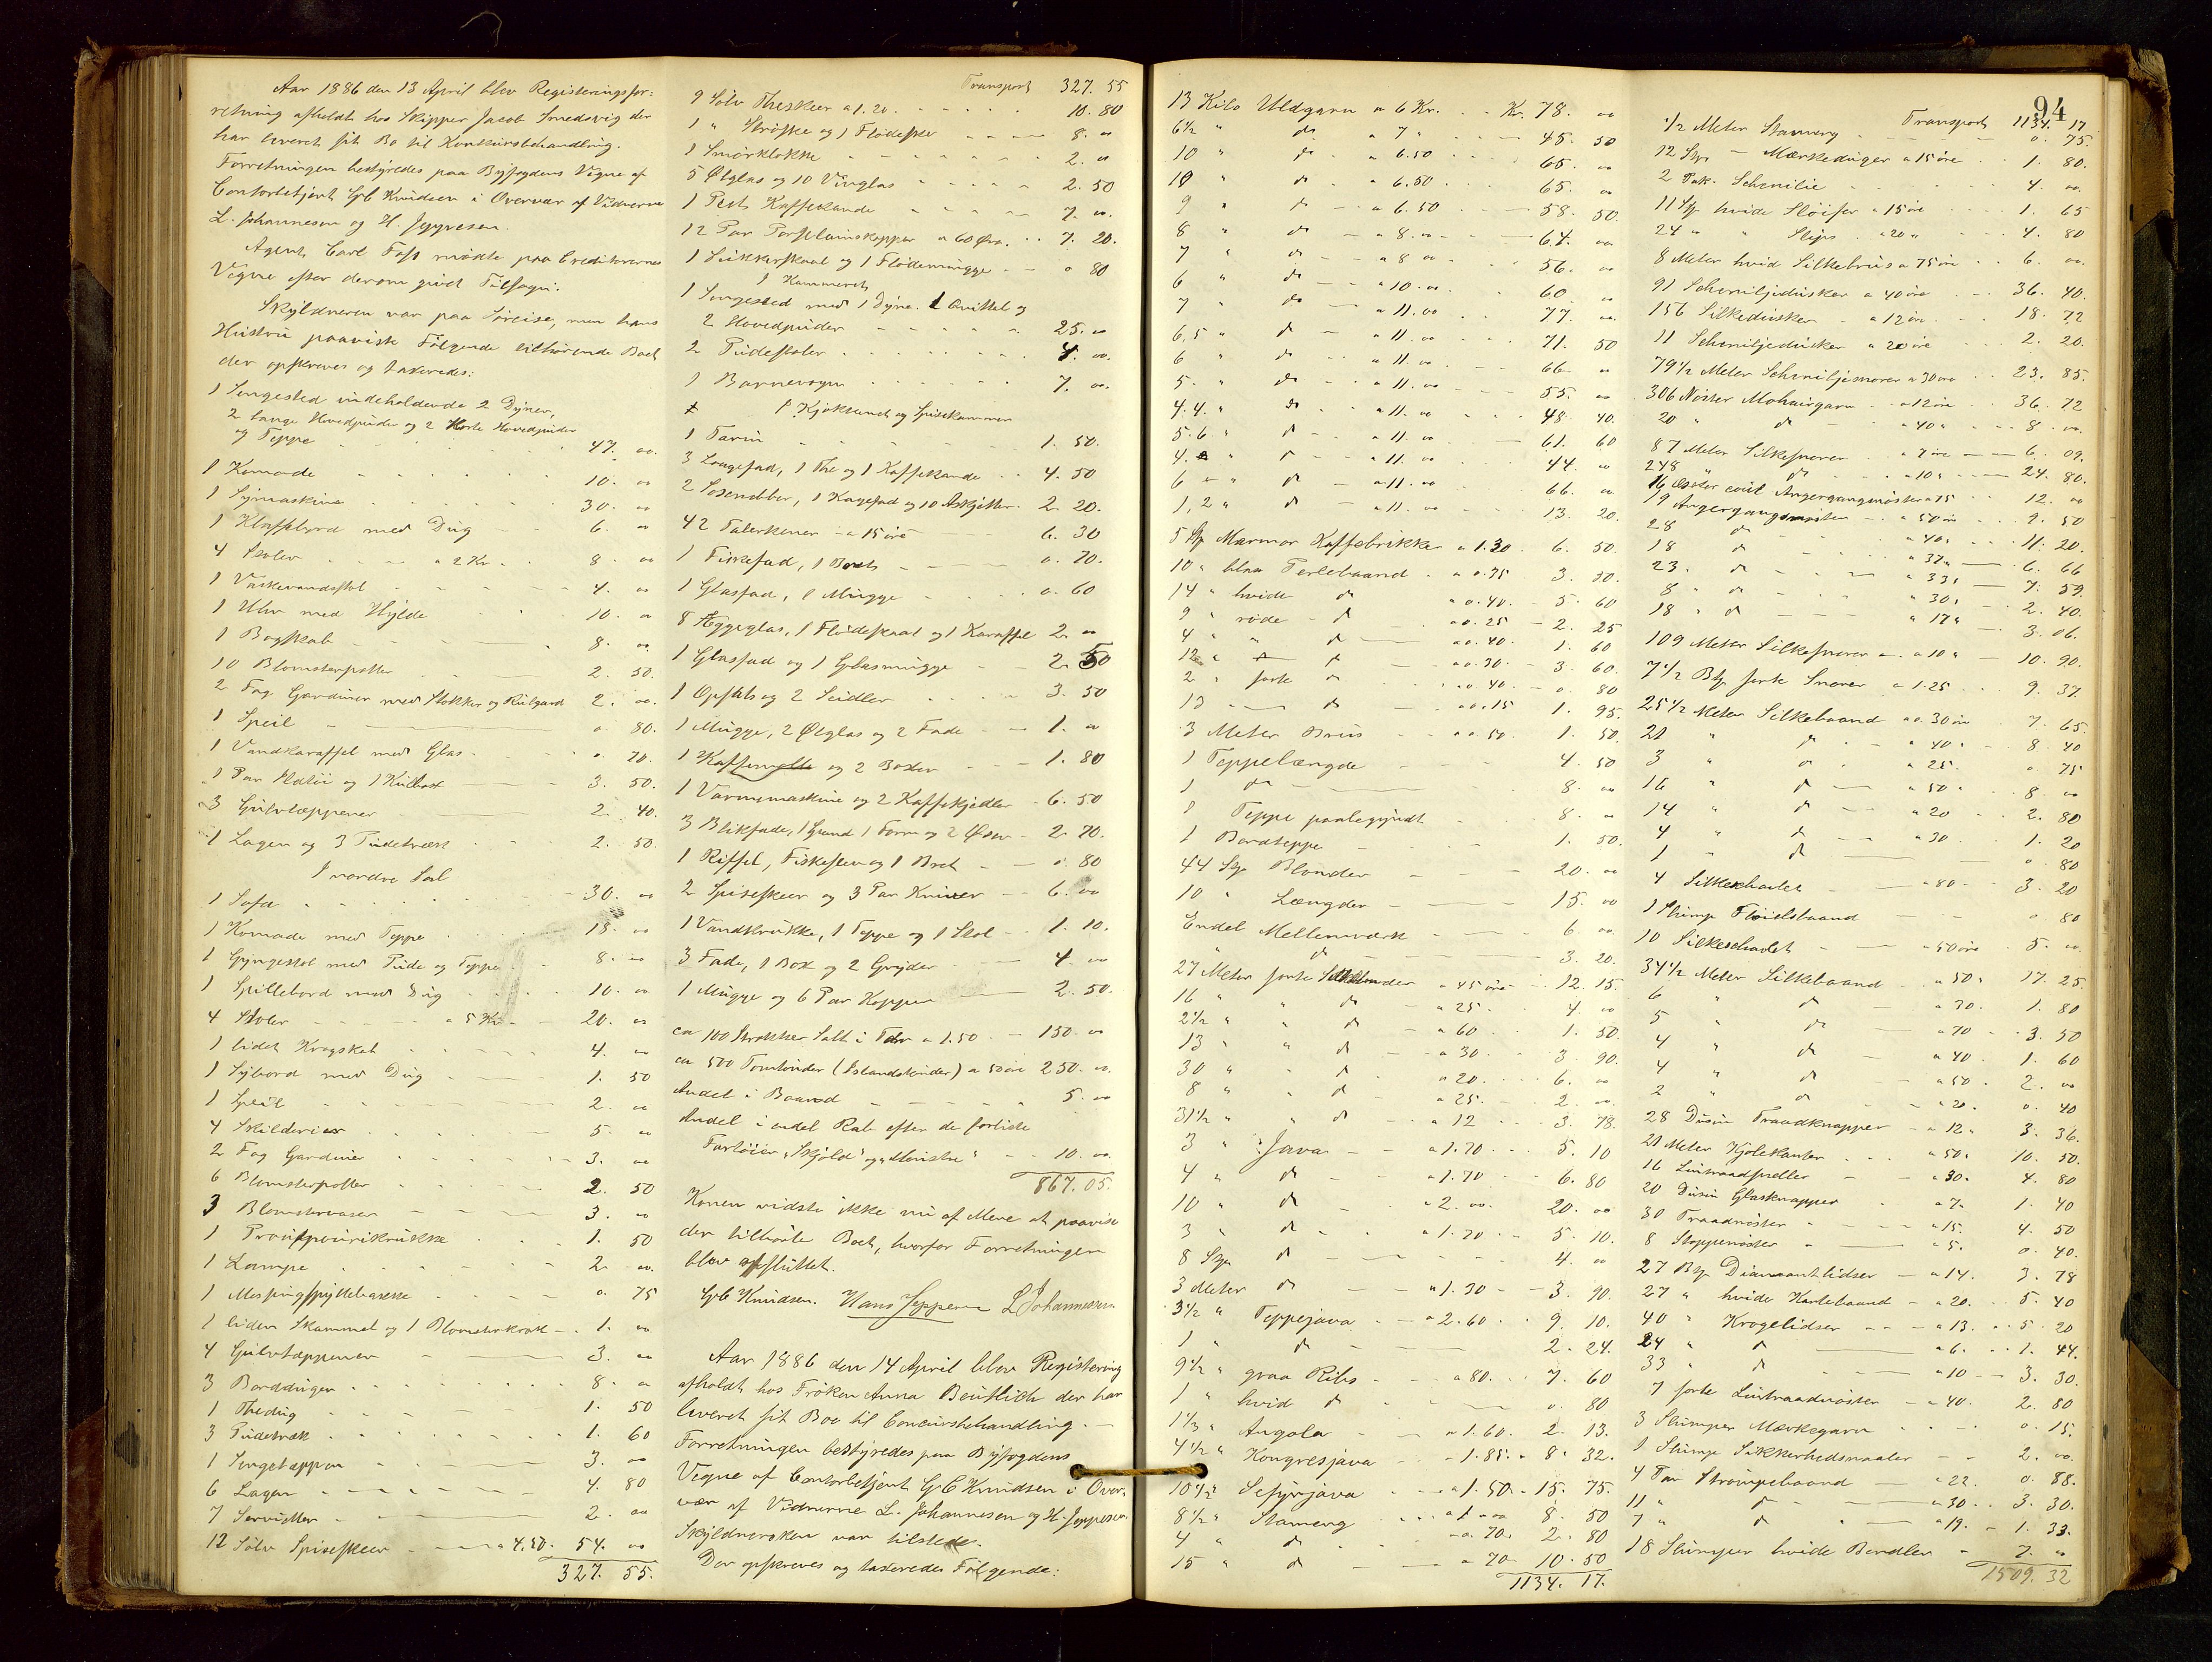 Aar 1886 den 13 April blev Registeringsfor-
retning afholdt hos Skipper Jacob Smedsvig der
har leveret sit Bo til Konkursbehandling.
Forretningen bestyredes paa Byfogdens Vegne af
Contorbetjent G C Knudsen i Overvær af Vidnerne
L. Johannesen og H. Jeppesen.
Agent Carl Foss mødte paa Creditorernes
Vegne efter derom givet Tilsagn.
Skyldneren var paa Søreise, men hans
Hustru paaviste Følgende tilhørende Boet
der opskreves og taxeredes:
1 Sengested indeholdende 2 Dyner,
2 lange Hovedpuder og 2 korte Hovedpuder
og Teppe 47. 00.
1 Komode 10. 00
1 Symaskine 30. 00
1 Klapbord med Dug 6. 00
4 Stoler a 2 Kr 8. 00
1 Vaskevandsstol 4. 00
1 Uhr med Hylde 10. 00
1 Bogskab 8. 00
10 Blomsterpotter 2. 50.
2 Fag Gardiner med Stokker og Rulgard 2. 00.
1 Speil 0 80.
1 Vandkaraffel med Glas 0. 70.
1 Par Platter og 1 Kulbox 3. 50.
3 Gulvtæppener 2. 40.
1 Lagen og 3 Pudetræk 2. 50.
I nordre Sal
1 Sofa 30. 00
1 Komode med Teppe 18. 00
1 Gyngestol med Pude og Teppe 8. 00
1 Spillebord med Dug 10. 00
4 Stoler a 5 Kr 20. 00
1 lidet Krogskab 4. 00
1 Sybord med Dug 1. 50
1 Speil 2. 00
4 Skilderier 5. 00
2 Fag Gardiner 3. 00
6 Blomsterpotter 2. 50
3 Blomstervaser 3. 00
1 Potpourikrukke 1. 50
1 Lampe 2. 00.
1 Messingspyttebakke 0. 75
1 liden Skammel og 1 Blomsterkrak 1. 00
4 Gulvtæppener 3. 00
3 Borddugen 8. 00
1 Thedug 1. 50
3 Pudetræk 1. 60
1 Sengetæppen 3. 00
6 Lagen 4. 80
7 Servietter 2. 00
12 Sølv Spiseskeer a 4.50. 54. 00
327. 55.
Transport 327. 55
9 Sølv Theskeer a 1.20. 10. 80
1 " Strøske og 1 Flødeske 8. 00
1 Smørklokke 2. 00
5 Ølglas og 10 Vinglas 2. 50
1 Plets Kaffekande 7. 00.
12 Par Porselainskopper a 60 Øre. 7. 20.
1 Sukkerskaal og 1 Flødemugge 0 80
I Kammeret
1 Sengested med 1 Dyne. 1 Qvittel og
2 Hovedpuder 25. 00
2 Pudestoler 4. 00.
1 Barnevogn 7. 00.
I Kjøkkenet og Spisekammer
1 Tarin 1. 50.
3 Langefad, 1 The og 1 Kaffekande 4. 50
2 Sosenebber, 1 Kagefad og 10 Askjetter. 2. 20.
42 Talerkener a 15 øre 6. 30
1 Fiskefad, 1 Bret 0. 70.
1 Glasfad, 1 Mugge 0. 60
8 Æggeglas, 1 Flødeskaal og 1 Karaffel 2. 00
1 Glasfad og 1 Glasmugge 2. 50
1 Opsats og 2 Seidler 3. 50
1 Mugge, 2 Ølglas og 2 Fade 1. 00
1 Kaffemølle og 2 Boxer 1. 80
1 Varmemaskine og 2 Kaffekjedler 6. 50
3 Blikfade, 1 Spand 1 Form og 2 Øser 2. 70.
1 Riffel, Fiskesten og 1 Bret 0. 80
2 Spiseskeer og 3 Par Kniver 6. 00
1 Vandkrukke, 1 Teppe og 1 Stol 1. 10.
3 Fade, 1 Box og 2 Gryder 4. 00
1 Mugge og 6 Par Kopper 2. 50.
ca 100 Strokker Salt i Tdr a 1.50 150. 00
ca 500 Tomtønder (Islandstønder) a 50 øre 250. 00.
Andel i Baand 5. 00
Andel i endel Rab efter de forliste
Fartøier "Skjold" og "Monstre" 10. 00.
867. 05.
Konen vidste ikke nu af Mere at paavise
der tilhørte Boet, hvorfor Forretningen
blev afsluttet.
G C Knudsen. Hans Jeppesen L Johannesen
Aar 1886 den 14 April blev Registering
afholdt hos Frøken Anna Beutlich der har
leveret sit Boe til Concursbehandling.
Forretningen bestyredes paa Byfogdens
Vegne af Contorbetjent G C Knudsen i Over-
vær af Vidnerne L. Johannesen og H. Jeppesen.
Skyldnersken var tilstede.
Der opskreves og taxeredes Følgende:
13 Kilo Uldgarn a 6 Kr. Kr. 78. 00
6½ " do a 7 " 45. 50
10 " do a 6.50 65. 00
10 " do a 6.50 65. 00
9 " do a 6.50 58. 50.
8 " do a 8. 00 64. 00
7 " do a 8 00 56. 00
6 " do a 10. 00 60 00
7 " do a 11. 00 77. 00.
6,5 " do a 11. 00 71. 50
6 " do a 11. 00 66. 00
5. " do a 11. 00 55. 00
4.4. " do a 11. 00 48. 40.
5.6 " do a 11. 00 61. 60
4. " do a 11. 00 44. 00
6 " do a 11. 00 66. 00
1,2 " do a 11. 00 13. 20.
5 Stp Marmor Kaffebrikker a 1.30 6. 50.
10 " blaa Perlebaand a 0.35 3. 50.
14 " hvide do a 0.40. 5. 60
9 " røde do a 0.25 2. 25
4 " " do a 0.40. 1. 60
12 " do a 0.30 3. 60.
2 " sorte do a 0 40. 0. 80
13 do a 0.15 1. 95.
3 Meter Brus a 0 50. 1. 50.
1 Teppelængde 4. 50
1 do 8. 00
1 Teppe paabegyndt 8. 00
1 Bordteppe 1. 50.
44 Stp Blonder 20. 00
10 " Længder 15. 00
Endel Mellemværk 6. 00.
" do 3. 20.
27 Meter sorte Silkeblonder a 45 øre 12. 15.
16 " " do a 25. 4. 00
2½ " " do a 60 1. 50.
13 " " do a 30 3. 90.
30 " " do a 20. 6. 00
8 " " do a 25. 2. 00.
31½ " " do a 12 3. 78.
3 " Java a 1.70 5. 10
4 " do a 1.70 6. 80
10 " do a 2. 00. 20. 00
3 " do a 1.70 5. 10.
8 Stp do 4. 00
3 Meter do a 1.30 3. 90.
3½ " Teppejava a 2.60 9. 10.
1 " do 2. 24.
9½ " graa Ribs a 80. 7. 60
1 " hvid do 0. 80
1⅓ " Angola a 1.60. 2. 13.
4½ " Kongresjava 1.85. 8. 32.
10½ " Sefyrjava a 1.50. 15. 75.
8½ " Stameng a 1.00 8. 50
4 " do a 70. 2. 80
15 " do a 70 10. 50
1134. 17.
94
Transport 1134. 17
½ Meter Stameng 0. 75.
12 Stp Mærkeduger a 15 øre 1. 80.
2 Pak. Schenilie 4. 00.
11 Stp hvide Sløifer a 15 øre 1. 65
24 " " Slips a 20 " 4. 80
8 Meter hvid Silkebrus a 75 øre 6. 00.
91 Scheniljedusker a 40 øre 36. 40.
156 Silkedusker a 12 øre 18. 72
11 Scheniljedusker a 20 øre 2. 20.
79½ Meter Scheniljesnorer a 30 øre 23. 85.
306 Nøster Mohairgarn a 12 øre 36. 72
20 " do a 40 " 8. 00.
87 Meter Silkesnorer a 7 øre 6. 09.
248 " do a 10 " 24. 80.
Angergarnsnøster a 15 12. 00
19 Angergarnsnøster a 50 øre 9. 50
28 do a 40 " 11. 20.
18 do a 37 " 6. 66
23. do a 33 " 7. 59.
8 " do a 30 " 2. 40.
18 " do a 17 " 3. 06.
109 Meter Silkesnorer a 10 " 10. 90.
7½ Bt sorte Snorer a 1.25 9. 37.
25½ Meter Silkebaand a 0. 30 øre 7. 65.
21 " do a 40 " 8. 40
3 " do a 25. 0. 75
16 " do a 50 " 8. 00
14 " do a 20 2. 80
4 " do a 30 1. 20
1 " do 0. 80
4 Silkeschavlet a 80 3. 20
1 Slump Fløielsbaand 0. 80
10 Silkeschavlet a 50 øre 5. 00.
34½ Meter Silkebaand a 50 " 17. 25
6 " do a 30. 1. 80
5 " do a 70 3. 50
4 " do a 40. 1. 60
4 " do a 50. 2. 00
2 " do a 20. 0. 40
28 Dusin Traadknapper a 12 " 3. 36.
21 Meter Kjolekanter a 50 " 10. 50.
16 Lintraadsneller a 30. 4. 80
20 Dusin Glasknapper a 7. 1. 40
30 Traadnøster a 15. 4. 50
8 Stoppenøster a 5. 0. 40.
27 Bt Diamantlidser a 14. 3. 78
27 " hvide Kantebaand a 20. 5. 40
40 " Krogelidser a 13. 5. 20
24 " do a 6. 1. 44.
33 " do a 10 3. 30.
7 sorte Lintraadnøster a 40. 2. 80
3 Slumper Mærkegarn 0. 15.
1 Slump Sikkerhedsnaaler 2. 00.
4 Par Strømpebaand a 22. 0. 88.
11 " do a 30. 3. 30.
7 " do a 19. 1. 33.
18 Slumper hvide Bendler 7. 00
1509. 32